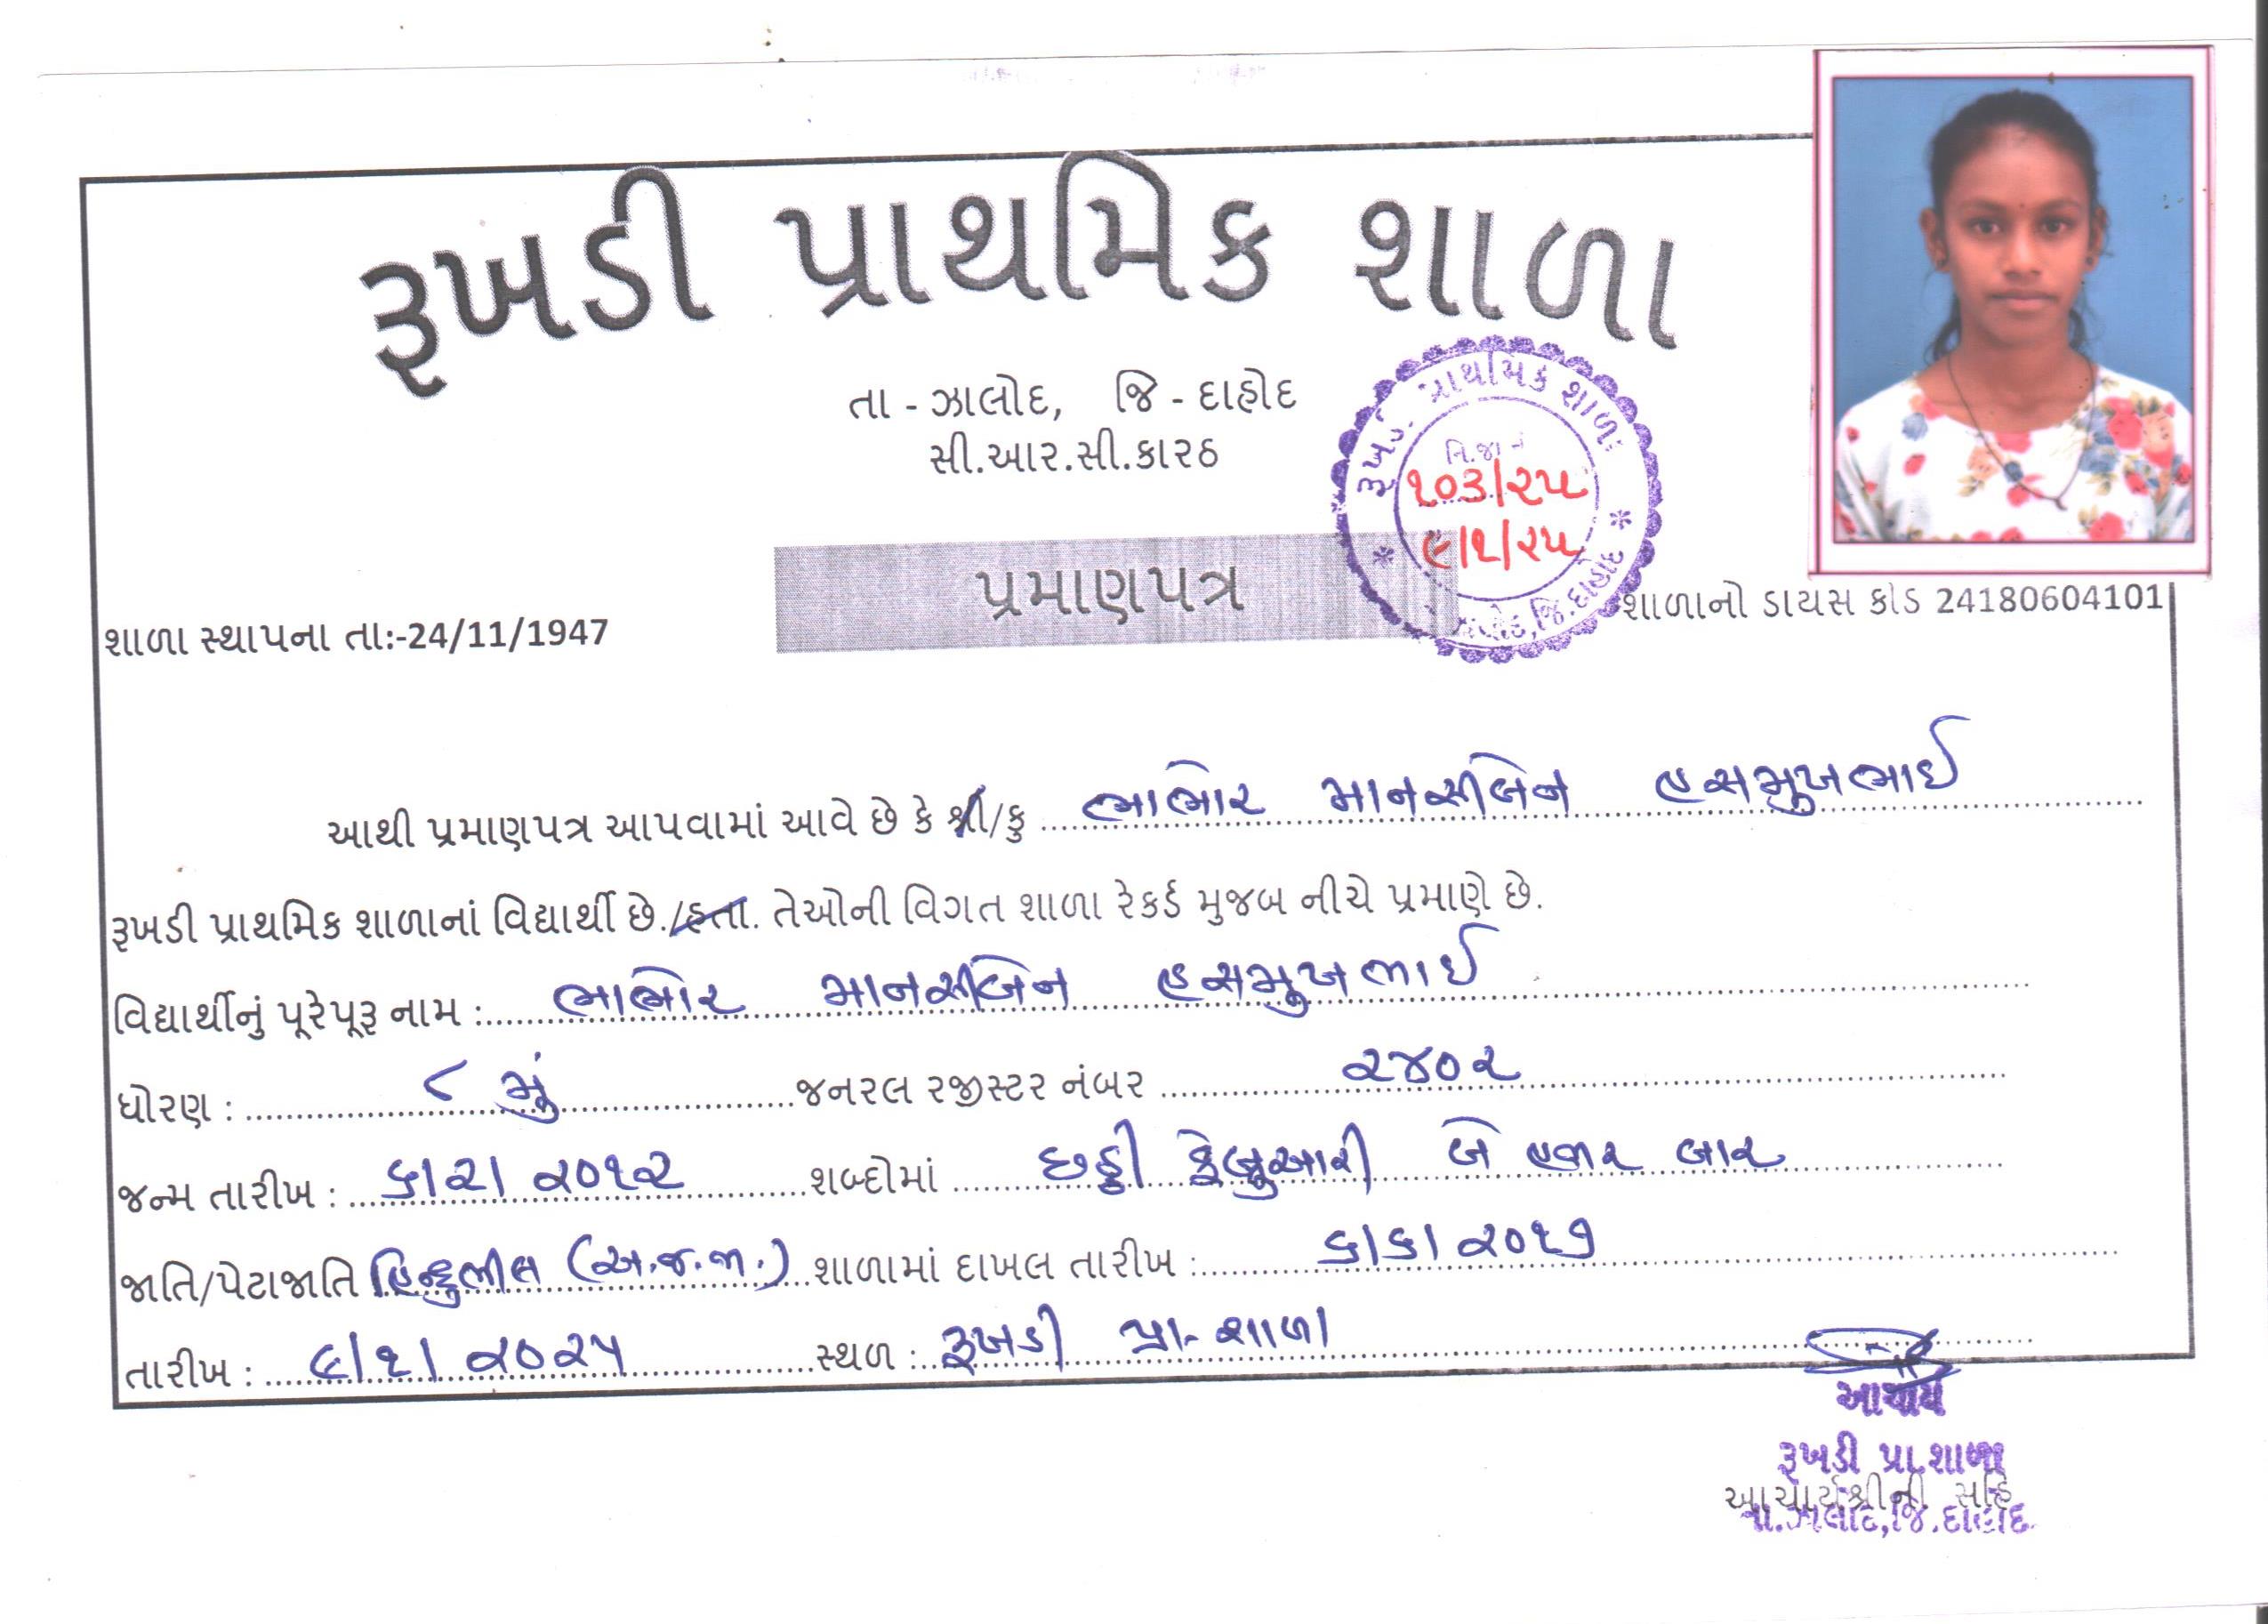 રૂખડી પ્રાથમિક શાળા
તા - ઝાલોદ, જિ - દાહોદ
સી.આર.સી.કારઠ
રૂખડી પ્રાથમિક શાળા
નિ.જા નં
૧૦૩/૨૫
૯/૧/૨૫
જિ.દાહોદ
પ્રમાણપત્ર
શાળા સ્થાપના તા:-24/11/1947
શાળાનો ડાયસ કોડ 24180604101
આથી પ્રમાણપત્ર આપવામાં આવે છે કે શ્રી/કુ ભાભોર માનસીબેન હસમુખભાઈ
રૂખડી પ્રાથમિક શાળાનાં વિદ્યાર્થી છે./હતા. તેઓની વિગત શાળા રેકર્ડ મુજબ નીચે પ્રમાણે છે.
વિદ્યાર્થીનું પૂરેપૂરૂ નામ : ભાભોર માનસીબેન હસમુખભાઈ
ધોરણ : ૮ મું જનરલ રજીસ્ટર નંબર ૨૪૦૨
જન્મ તારીખ : ૬/૨/૨૦૧૨ શબ્દોમાં છઠ્ઠી ફેબ્રુઆરી બે હજાર બાર
જાતિ/પેટાજાતિ હિન્દુભીલ (અ.જ.જા.) શાળામાં દાખલ તારીખ : ૬/૬/૨૦૧૭
તારીખ : ૯/૧/૨૦૨૫ સ્થળ : રૂખડી પ્રા-શાળા
આચાર્ય
રૂખડી પ્રા.શાળા
આચાર્યશ્રીની સહિ
તા.ઝાલોદ,જિ.દાહોદ